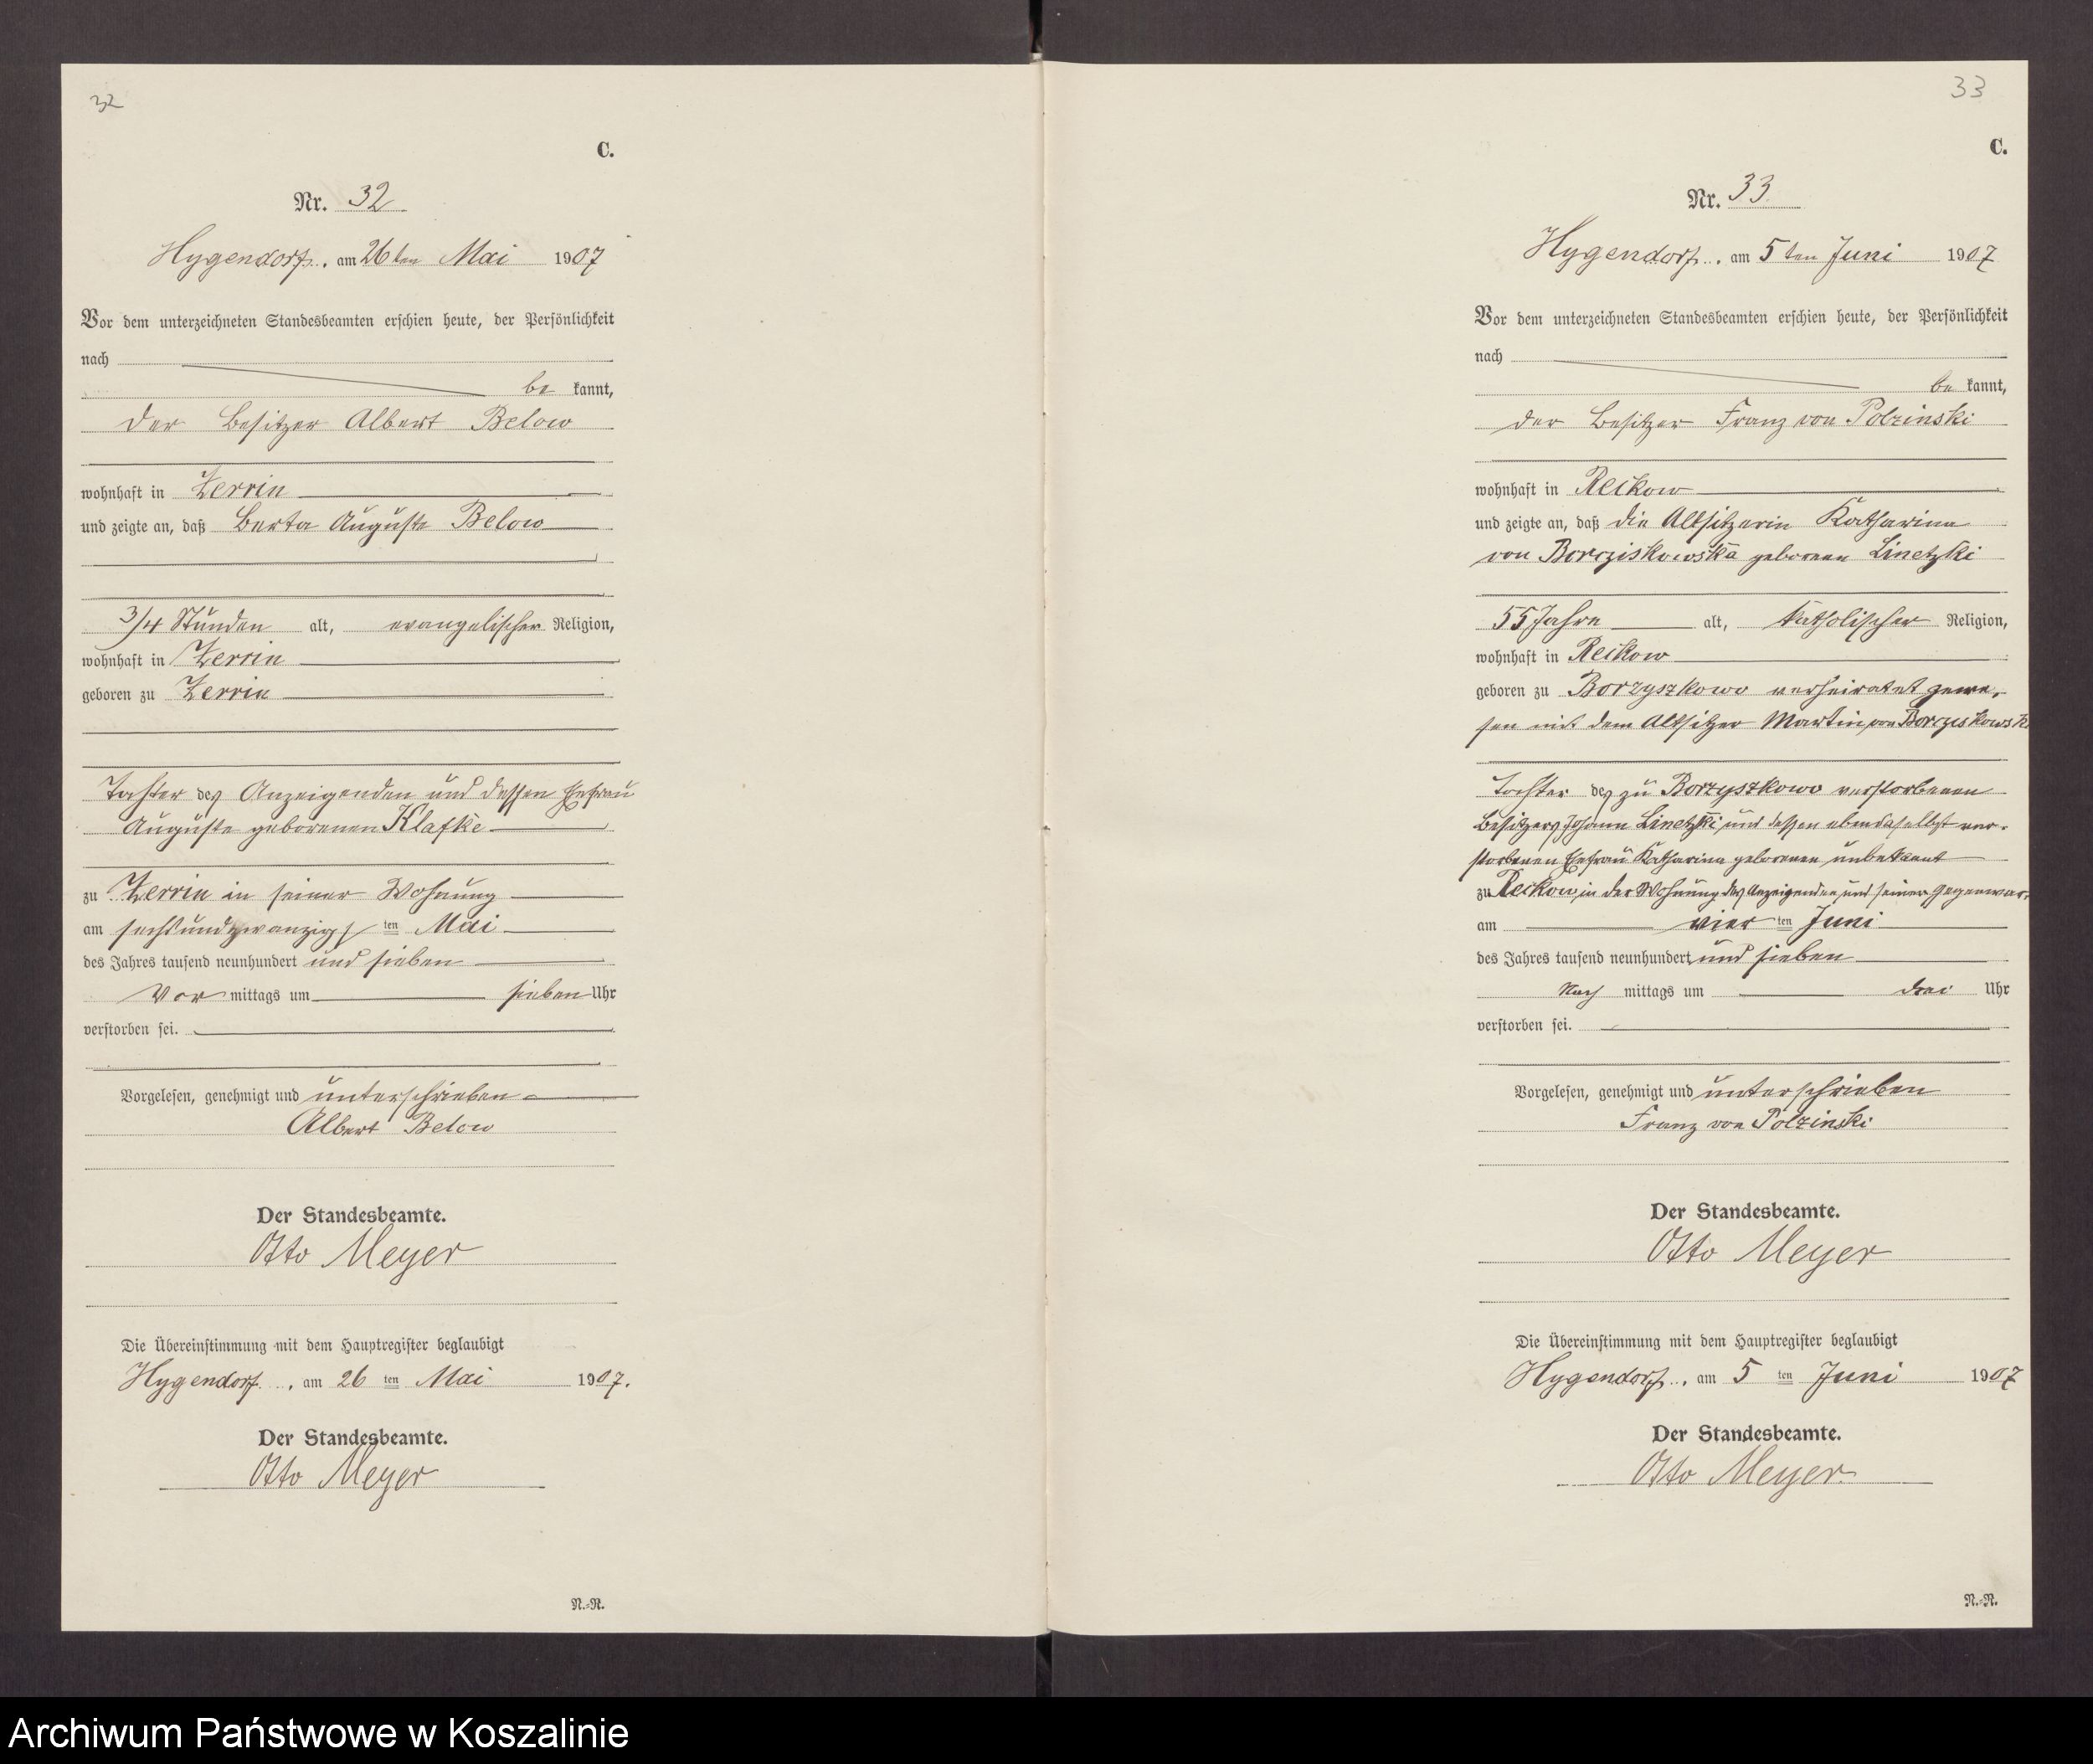 32
C.
Nr. 32
Hygendorf, am 26ten Mai 1907
Vor dem unterzeichneten Standesbeamten erschien heute, der Persönlichkeit
nach
be kannt,
der Besitzer Albert Below
wohnhaft in Zerrin
und zeigte an, daß Berta Auguste Below
3/4 Stunden alt, evangelischer Religion,
wohnhaft in Zerrin
geboren zu Zerrin
Tochter des Anzeigenden und dessen Ehefrau
Auguste geborenen Klafke
zu Zerrin in seiner Wohnung
am sechsundzwanzigs ten Mai
des Jahres tausend neunhundert und sieben
Vor mittags um sieben Uhr
verstorben sei.
Vorgelesen, genehmigt und unterschrieben
Albert Below
Der Standesbeamte.
Otto Meyer
Die Übereinstimmung mit dem Hauptregister beglaubigt
Hygendorf, am 26 ten Mai 1907.
Der Standesbeamte.
Otto Meyer
N.-R.
33
C.
Nr. 33
Hygendorf, am 5ten Juni 1907
Vor dem unterzeichneten Standesbeamten erschien heute, der Persönlichkeit
nach
be kannt,
der Besitzer Franz von Polzinski
wohnhaft in Reckow
und zeigte an, daß die Altsitzerin Katharina
von Borcziskowska geborene Linetzki
55 Jahre alt, katholischer Religion,
wohnhaft in Reckow
geboren zu Borzyszkowo verheiratet gewe-
sen mit dem Altsitzer Martin von Borcziskowski
Tochter des zu Borzyszkowo verstorbenen
Besitzers Johann Linetzki und dessen ebendaselbst ver-
storbenen Ehefrau Katharina geborenen unbekannt
zu Reckow, in der Wohnung des Anzeigenden und seiner Gegenwar-
am vier ten Juni
des Jahres tausend neunhundert und sieben
Nach mittags um drei Uhr
verstorben sei.
Vorgelesen, genehmigt und unterschrieben
Franz von Polzinski
Der Standesbeamte.
Otto Meyer
Die Übereinstimmung mit dem Hauptregister beglaubigt
Hygendorf, am 5 ten Juni 1907
Der Standesbeamte.
Otto Meyer
N.-R.
Archiwum Państwowe w Koszalinie